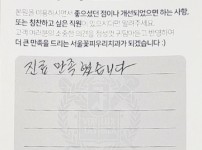 본원을 이용하시면서 좋았었던 점이나 개선되었으면 하는 사항,
또는 칭찬하고 싶은 직원이 있으시다면 말해주세요.
고객 여러분의 소중한 의견을 
더 큰 만족을 드리는 서울꽃피우리치과가 되겠습니다 :)
진료 만족했습니다